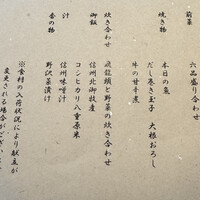 前菜　六品盛り合わせ
焼き物　本日の魚
だし巻き玉子　大根おろし
牛の甘辛煮
炊き合わせ　飛龍頭と野菜の炊き合わせ
御飯　信州北御牧産
コシヒカリ八重原米
汁　信州味噌汁
香の物　野沢菜漬け
※食材の入荷状況により献立が
変更される場合がござい